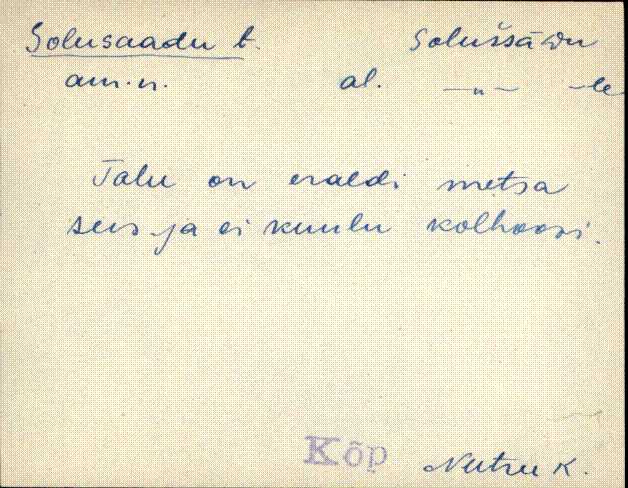 Solusaadu t. Solušsā͏du
am. n. al. —"— -le
Talu on eraldi metsa
sees ja ei kuulu kolhoosi.
Kõp Nutru K.